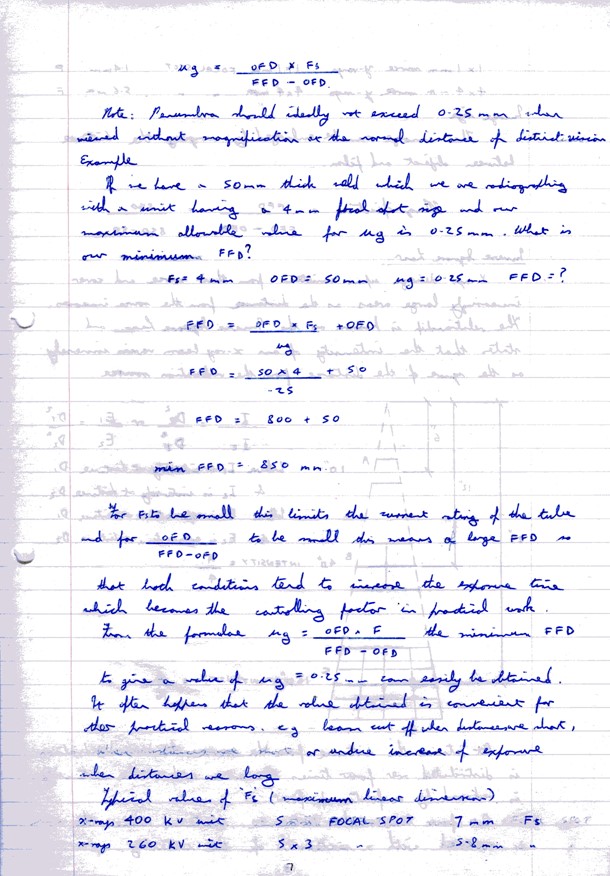 ug = OFD × Fs
FFD - OFD.
Note: Penumbra should ideally not exceed 0.25 mm when
viewed without magnification at the normal distance of distinct vision
Example
If we have a 50mm thick weld which we are radiographing
with a unit having a 4mm focal spot size and our
maximum allowable value for ug is 0.25mm. What is
our minimum FFD?
Fs = 4 mm OFD = 50mm ug = 0.25 mm FFD = ?
FFD = OFD × Fs + OFD
ug
FFD = 50 × 4 + 50
.25
FFD = 800 + 50
min FFD = 850 mm.
For Fs to be small this limits the current rating of the tube
and for OFD to be small this means a large FFD so
FFD-OFD
that both conditions tend to increase the exposure time
which becomes the controlling factor in practical work.
From the formulae ug = OFD × F the minimum FFD
FFD - OFD
to give a value of ug = 0.25 mm can easily be obtained.
It often happens that the value obtained is convenient for
other practical reasons. e.g beam cut off when distances are short,
or undue increase of exposure
when distances are long
Typical values of Fs (maximum linear dimension)
x-rays 400 KV unit 5 mm FOCAL SPOT 7 mm Fs
x-rays 260 KV unit 5 × 3 " 5.8 mm "
7